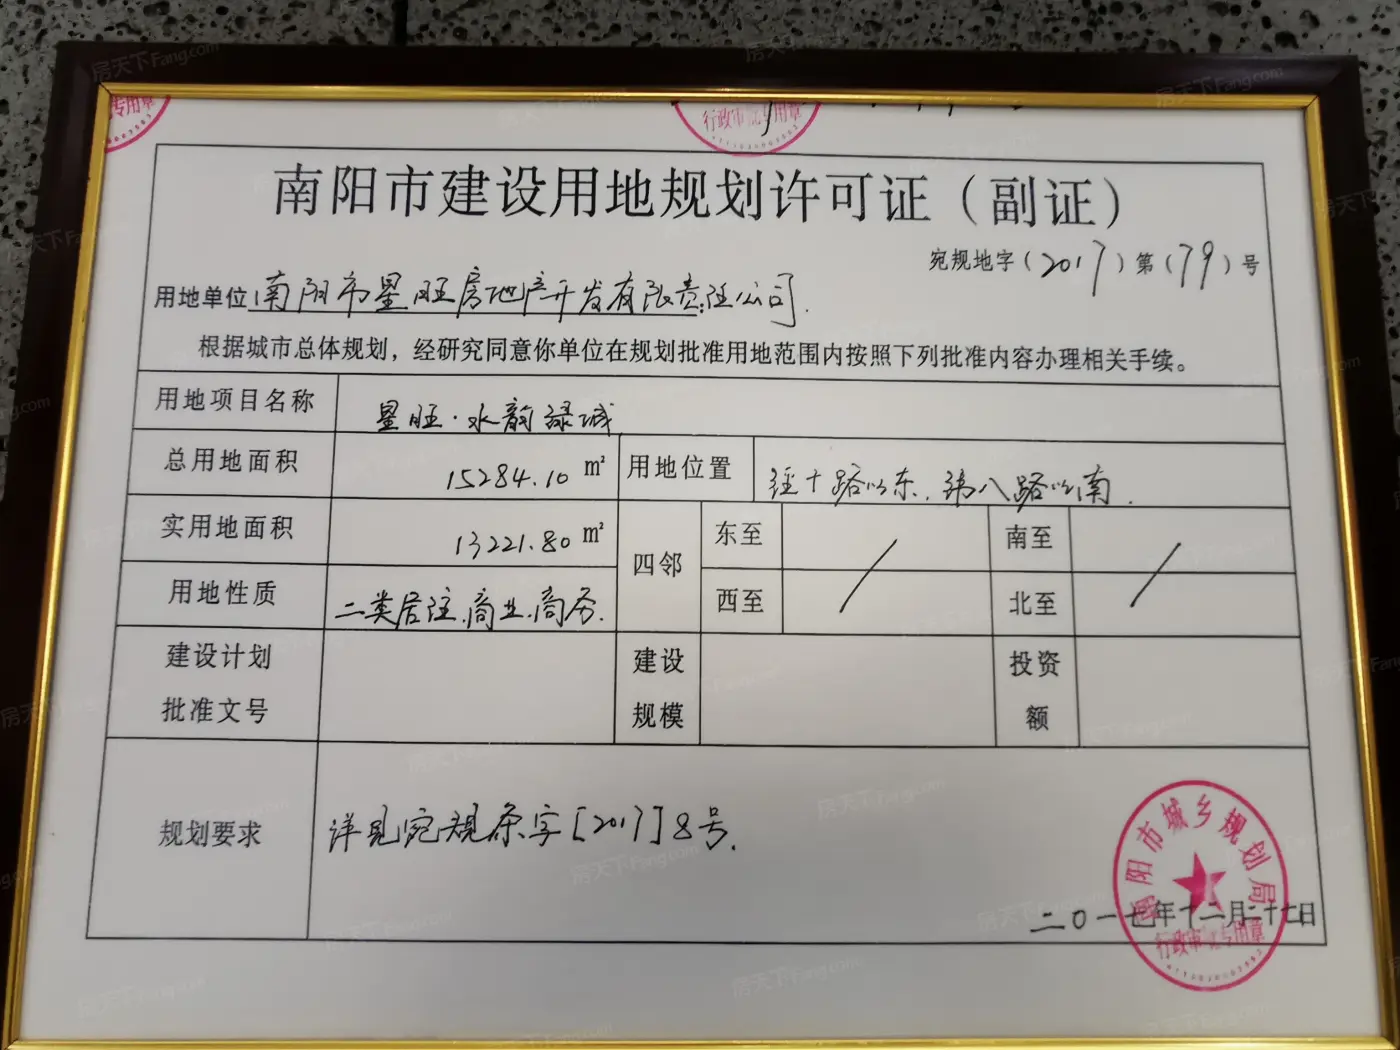 专用章
行政审批专用章
南阳市建设用地规划许可证（副证）
宛规地字（2017）第（79）号
用地单位 南阳市星旺房地产开发有限责任公司.
根据城市总体规划，经研究同意你单位在规划批准用地范围内按照下列批准内容办理相关手续。
用地项目名称 星旺·水韵绿城
总用地面积 15284.10 m² 用地位置 经十路以东、纬八路以南.
实用地面积 13221.80 m² 四邻 东至 / 南至 /
用地性质 二类居住、商业、商务. 西至 北至
建设计划批准文号 建设规模 投资额
规划要求 详见宛规条字[2017]8号.
南阳市城乡规划局
二〇一七年十二月二十七日
行政审批专用章
房天下Fang.com